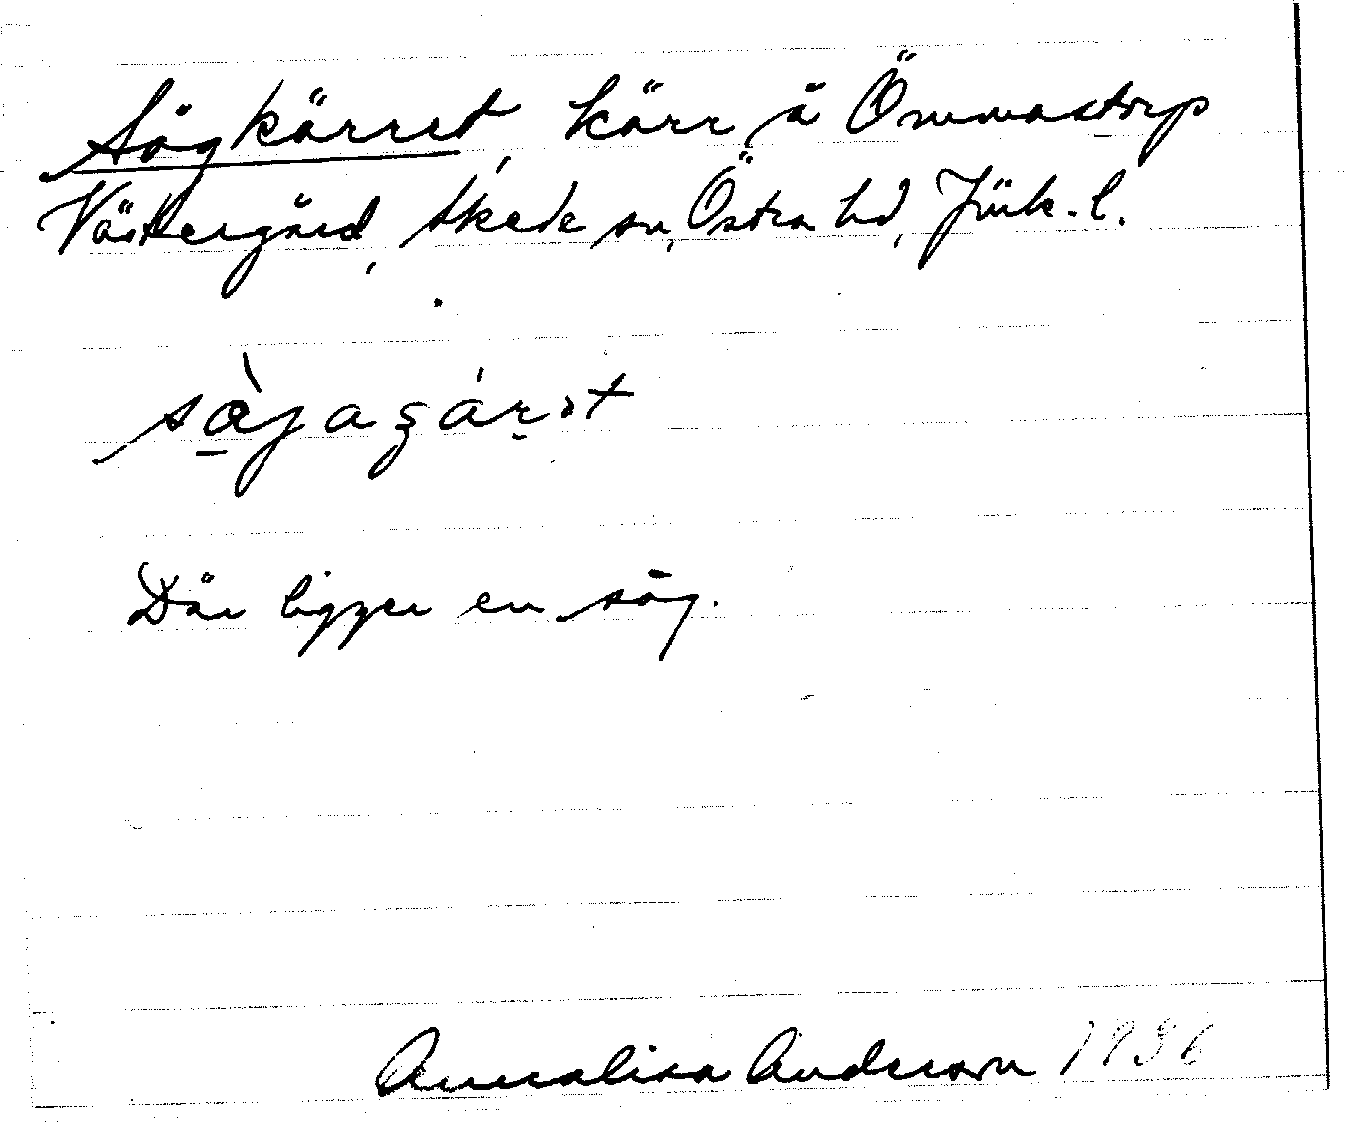 Sågkärret, kärr å Ömmastorp
Västergård, Skede sn, Östra hd, Jönk. l.
Där ligger en såg.
Annalisa Anderson 1936